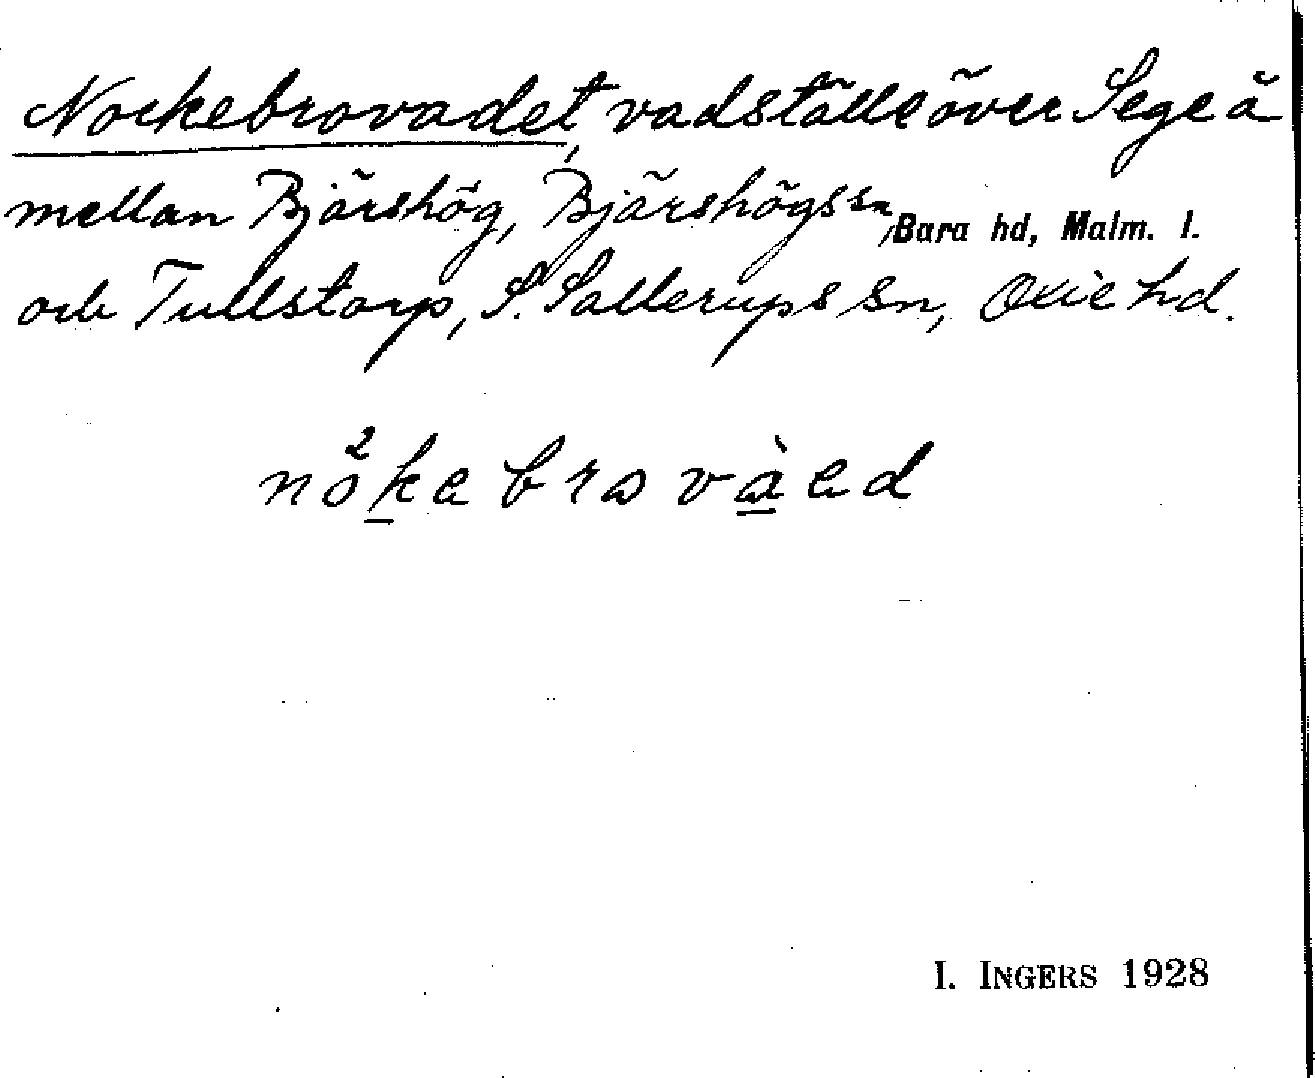 Nockebrovadet, vadställe över Sege å
mellan Bjärshög, Bjärshögs sn, Bara hd, Malm. l.
och Tullstorp, S. Sallerups sn, Oxie hd.
nòkebrovàed
I. INGERS 1928